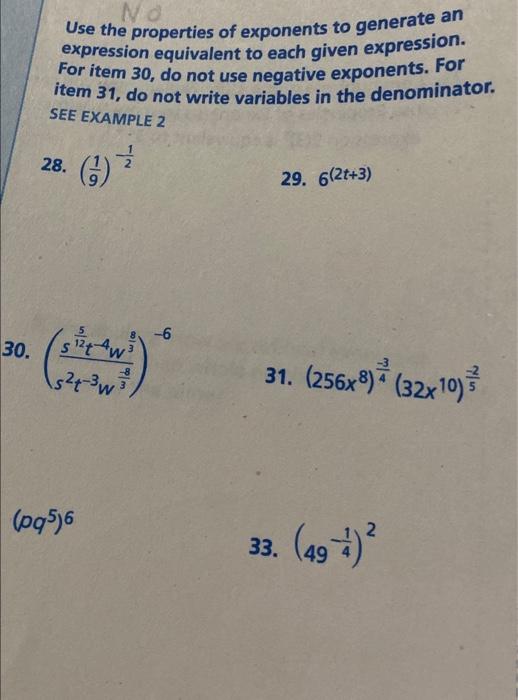 No
Use the properties of exponents to generate an
expression equivalent to each given expression.
For item 30, do not use negative exponents. For
item 31, do not write variables in the denominator.
SEE EXAMPLE 2
28. (1/9)^(-1/2)
29. 6^(2t+3)
30. ((s^(5/12)t^(-4)w^(8/3))/(s^2t^(-3)w^(-8/3)))^(-6)
31. (256x^8)^(-3/4) (32x^10)^(-2/5)
(pq^5)^6
33. (49^(-1/4))^2